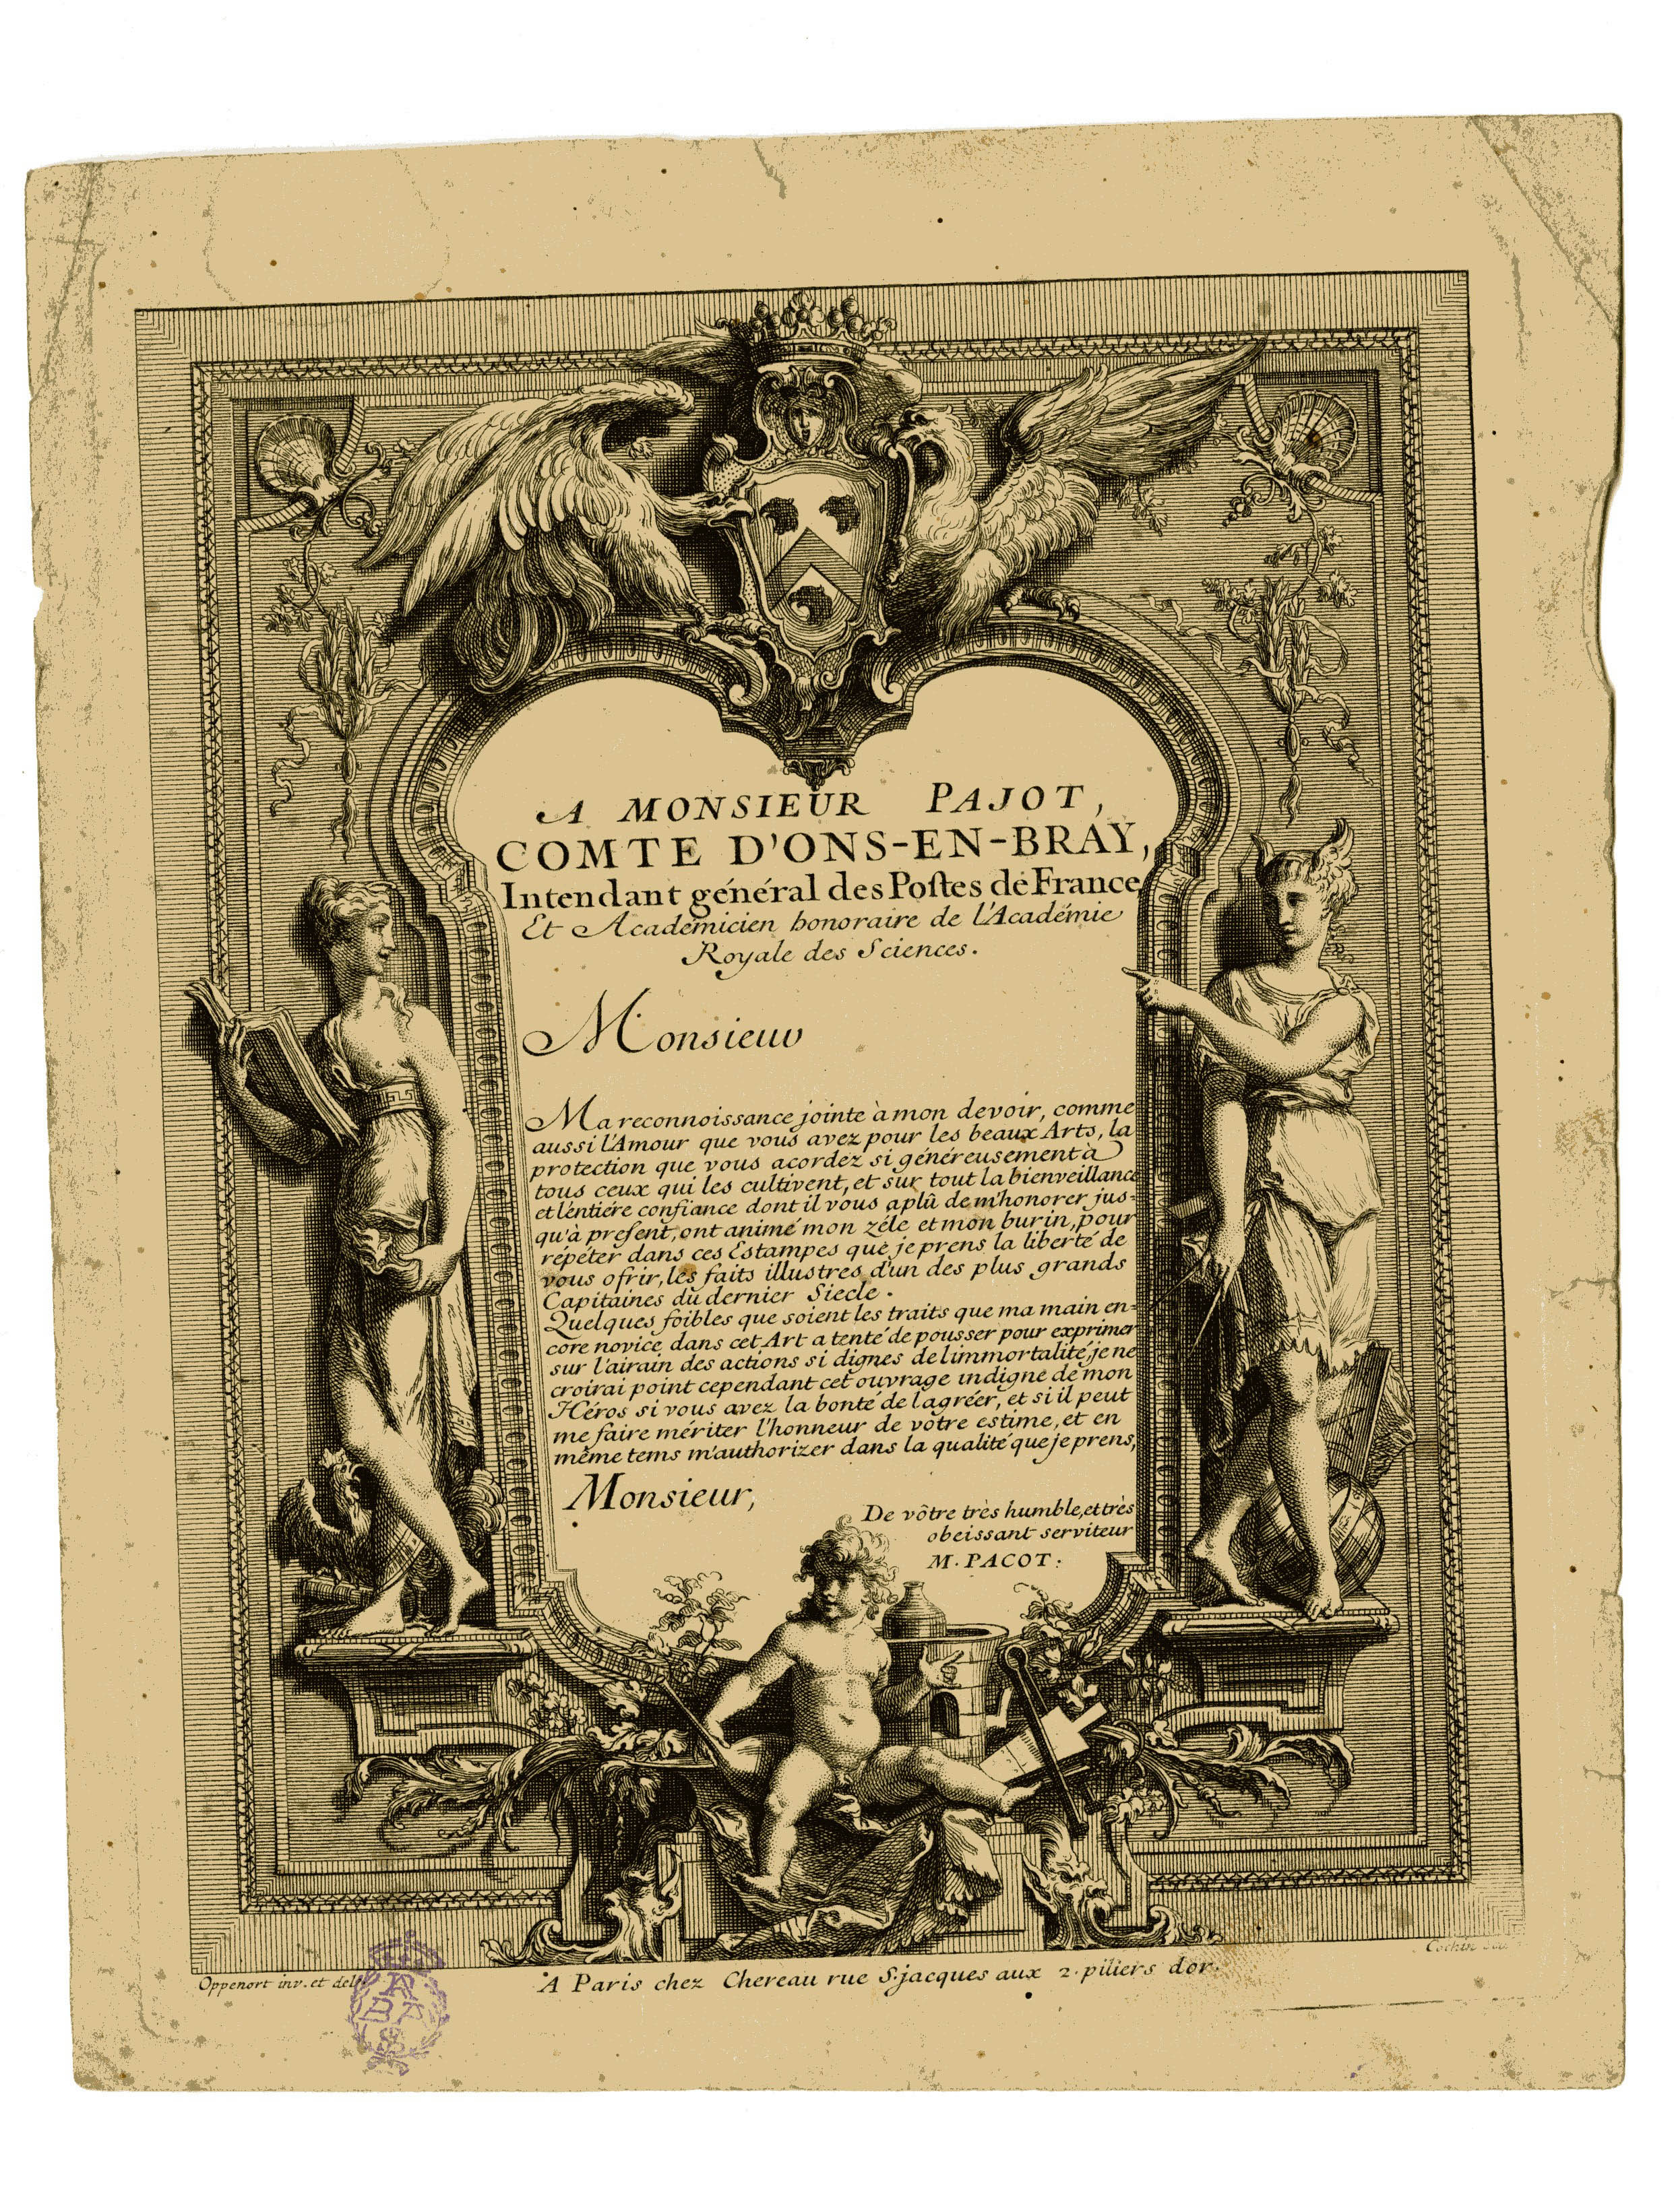 A MONSIEUR PAJOT,
COMTE D'ONS-EN-BRAY,
Intendant général des Poſtes de France
Et Academicien honoraire de l'Académie
Royale des Sciences.
Monsieur
Ma reconnoissance jointe à mon devoir, comme
aussi l'Amour que vous avez pour les beaux Arts, la
protection que vous acordez si généreusement à
tous ceux qui les cultivent, et sur tout la bienveillance
et l'éntiére confiance dont il vous a plû de m'honorer jus-
qu'à preſent, ont animé mon zéle et mon burin, pour
répéter dans ces Estampes que je prens la liberté de
vous ofrir, les faits illustres d'un des plus grands
Capitaines du dernier Siecle.
Quelques foibles que soient les traits que ma main en-
core novice dans cet Art a tenté de pousser pour exprimer
sur l'airain des actions si dignes de l'immortalité, je ne
croirai point cependant cet ouvrage indigne de mon
Héros si vous avez la bonté de l'agréer, et si il peut
me faire mériter l'honneur de vôtre estime, et en
même tems m'authorizer dans la qualité que je prens,
Monsieur,
De vôtre très humble, et très
obeissant serviteur
M. PACOT.
Oppenort inv. et del.
A Paris chez Chereau rue S. jacques aux 2. piliers d'or.
Cochin